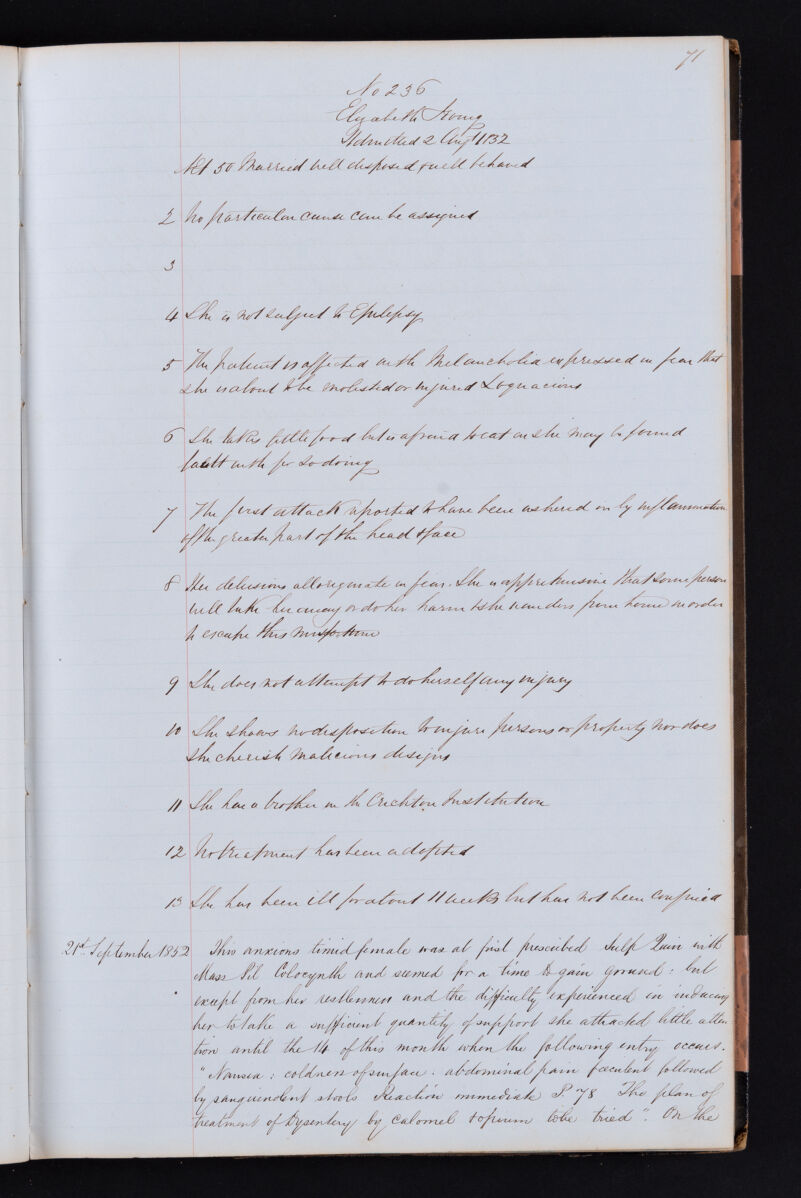 71
No 236
Elizabeth
Admitted 2 Augt 1132
Aet 50 Married well disposed & well behaved
2 No particular cause can be assigned
3
4 She is not subject to Epilepsy
5 The patient is affected with Melancholia expressed in fear that
she is about to be molested or injured Loquacious
6 She takes little food but is afraid to eat as she may be found
fault with for so doing
7 The first attack reported to have been ushered in by inflammation
of the greater part of the head & face
8 Her delusions all originate in fear. She is apprehensive that some person
will take her away or do her harm & she wanders from home in order
to escape this misfortune
9 She does not attempt to do herself any injury
10 She shows no disposition to injure persons or property nor does
she cherish malicious designs
11 She has a brother in the Crichton Institution
12 No treatment has been adopted
13 She has been ill for about 11 weeks but has not been confined
21st September 1852 This anxious timid female was at first prescribed Sulp Quin with
Mass Pil Colocynth and seemed for a time to gain ground: but
except from her restlessness and the difficulty experienced in inducing
her to take a sufficient quantity of support she attracted little atten-
tion until the 14 of this month when the following entry occurs.
"Nausea: coldness of surface: abdominal pain feculent followed
by sanguinolent stools Reaction immediate P. 78 The plan of
treatment of Dysentery by calomel & opium to be tried". On the